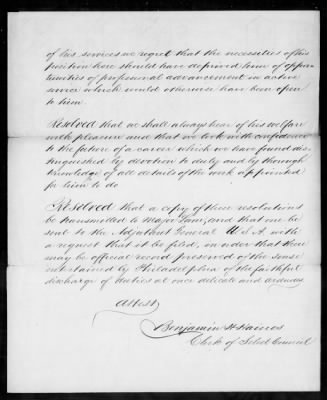 of his services we regret that the necessities of his
position here should have deprived him of oppor-
tunities of professional advancement in active
service which would otherwise have been open
to him.
Resolved that we shall always hear of his welfare
with pleasure and that we look with confidence
to the future of a career which we have found dis-
tinguished by devotion to duty and by thorough
knowledge of all details of the work appointed
for him to do
Resolved that a copy of these resolutions
be transmitted to Major Lane, and that one be
sent to the Adjutant General U.S.A. with
a request that it be filed, in order that there
may be official record preserved of the sense
entertained by Philadelphia of the faithful
discharge of duties at once delicate and arduous
Attest
Benjamin H Haines
Clerk of Select Council